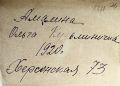 Амалина
Ольга Кузьминична
1920.
Херсонская 73